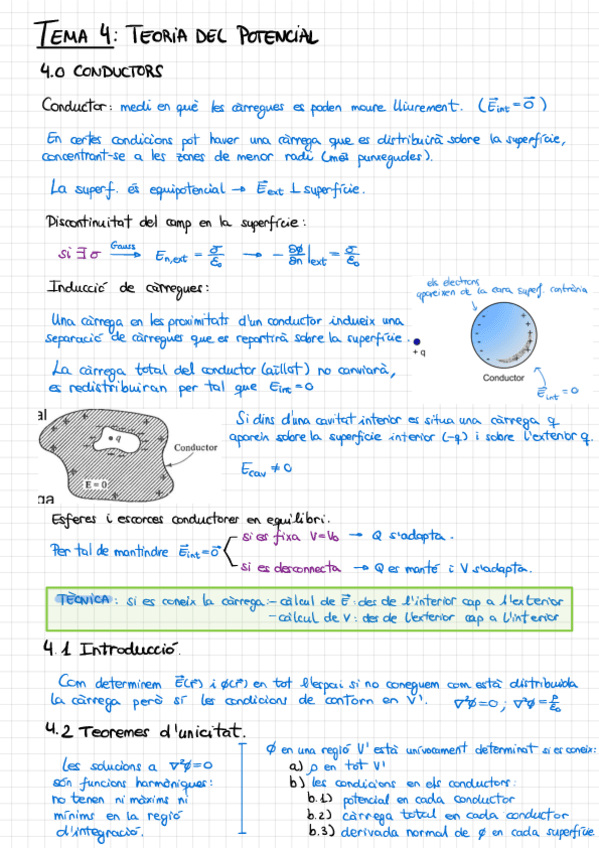 TEMA 4: TEORIA DEL POTENCIAL
4.0 CONDUCTORS
Conductor: medi en què les càrregues es poden moure lliurement. (E⃗int = 0⃗)
En certes condicions pot haver una càrrega que es distribuirà sobre la superfície,
concentrant-se a les zones de menor radi (més punxegudes).
La superf. és equipotencial → E⃗ext ⊥ superfície.
Discontinuitat del camp en la superfície:
si ∃ σ Gauss → En,ext = σ/ε₀ → - ∂ϕ/∂n |ext = σ/ε₀
Inducció de càrregues:
els electrons
apareixen de la cara superf. contrària
Una càrrega en les proximitats d'un conductor indueix una
separació de càrregues que es repartirà sobre la superfície.
+ q
Conductor
E⃗int = 0
La càrrega total del conductor (aïllat) no canviarà,
es redistribuiran per tal que Eint = 0
al
q
Conductor
E = 0
ga
Si dins d'una cavitat interior es situa una càrrega q
apareix sobre la superfície interior (-q) i sobre l'exterior q.
Ecav ≠ 0
Esferes i escorces conductores en equilibri.
Per tal de mantindre E⃗int = 0⃗
si es fixa V=V₀ → Q s'adapta.
si es desconnecta → Q es manté i V s'adapta.
TÈCNICA: si es coneix la càrrega: - càlcul de E⃗: des de l'interior cap a l'exterior
- càlcul de V: des de l'exterior cap a l'interior
4.1 Introducció.
Com determinem E⃗(r⃗) i ϕ(r⃗) en tot l'espai si no coneguem com està distribuïda
la càrrega però sí les condicions de contorn en V'. ∇²ϕ=0; ∇²ϕ=ρ/ε₀
4.2 Teoremes d'unicitat.
Les solucions a ∇²ϕ=0
són funcions harmòniques:
no tenen ni màxims ni
mínims en la regió
d'integració.
ϕ en una regió V' està unívocament determinat si es coneix:
a) ρ en tot V'
b) les condicions en els conductors:
b.1) potencial en cada conductor
b.2) càrrega total en cada conductor
b.3) derivada normal de ϕ en cada superfície